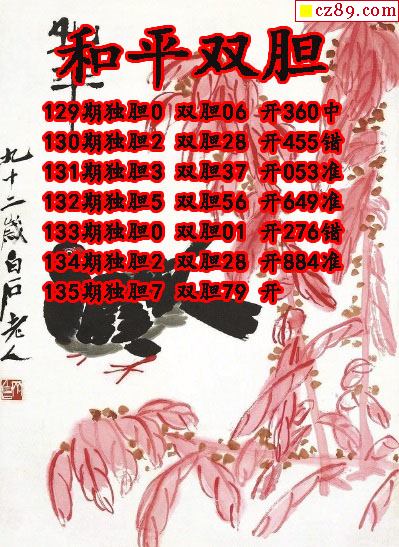 cz89.com
和平
和平双胆
129期独胆0 双胆06 开360中
130期独胆2 双胆28 开455错
131期独胆3 双胆37 开053准
132期独胆5 双胆56 开649准
133期独胆0 双胆01 开276错
134期独胆2 双胆28 开884准
135期独胆7 双胆79 开
九十二岁白石老人